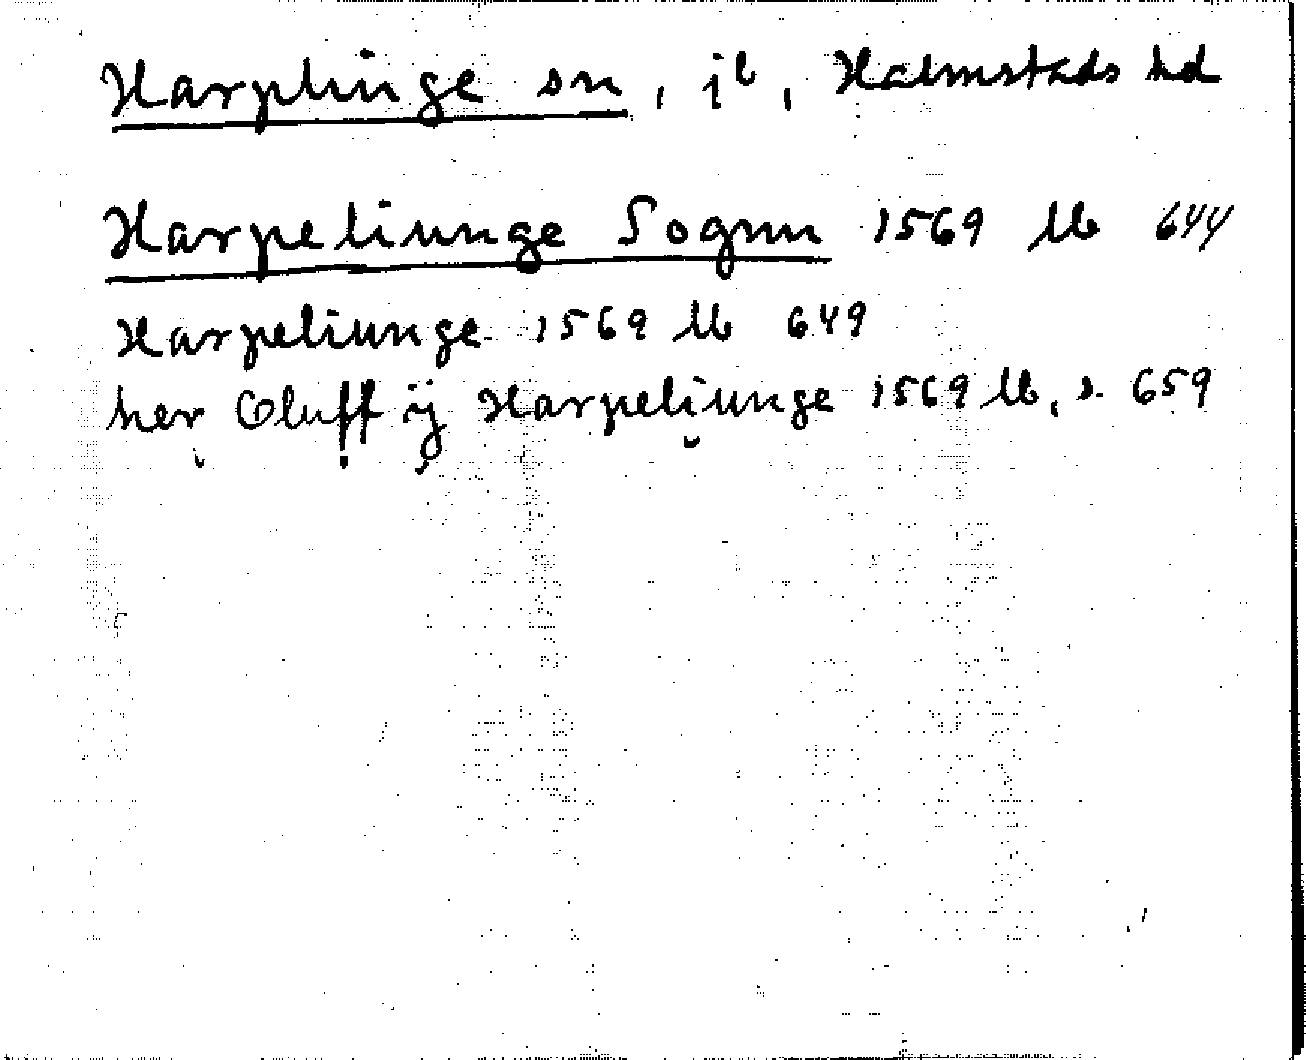 Harplinge sn, ib, Halmstads hd
Harpeliunge Sognn 1569 lb 644
Harpeliunge 1569 lb 649
her Oluff ij Harpeliunge 1569 lb, s. 659